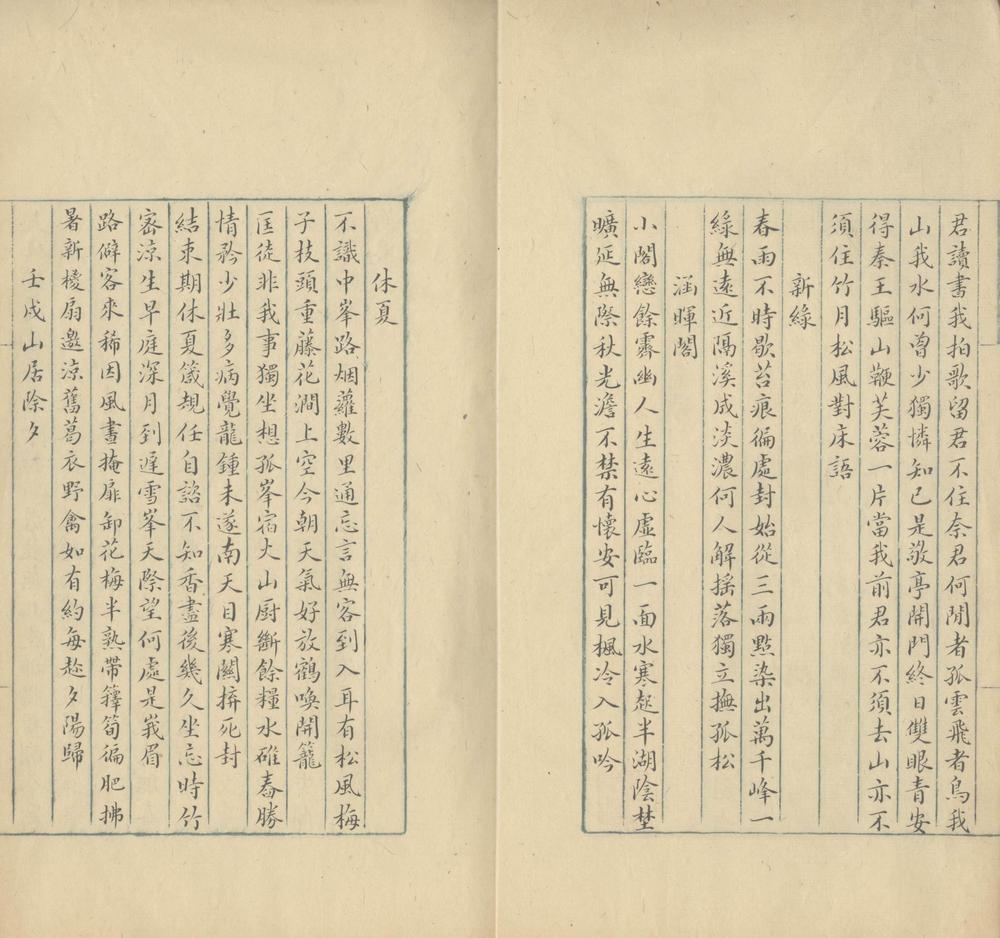 君讀書我拍歌留君不住奈君何閒者孤雲飛者鳥我
山我水何曾少獨憐知己是敬亭開門終日雙眼青安
得秦王驅山鞭芙蓉一片當我前君亦不須去山亦不
須住竹月松風對床語
新綠
春雨不時歇苔痕徧處封始從三兩點染出萬千峰一
綠無遠近隔溪成淡濃何人解搖落獨立撫孤松
涵暉閣
小閣戀餘霽幽人生遠心虛臨一面水寒起半湖陰埜
曠延無際秋光澹不禁有懷安可見楓冷入孤吟
休夏
不識中峯路烟蘿數里通忘言無客到入耳有松風梅
子枝頭重藤花澗上空今朝天氣好放鶴喚開籠
匡徒非我事獨坐想孤峯宿火山厨斷餘糧水碓舂勝
情矜少壯多病覺龍鍾未遂南天目寒關拚死封
結束期休夏箴規任自諮不知香盡後幾久坐忘時竹
密涼生早庭深月到遲雪峯天際望何處是峩眉
路僻客來稀因風晝掩扉卸花梅半熟帶籜筍徧肥拂
暑新椶扇邀涼舊葛衣野禽如有約每趂夕陽歸
壬戌山居除夕